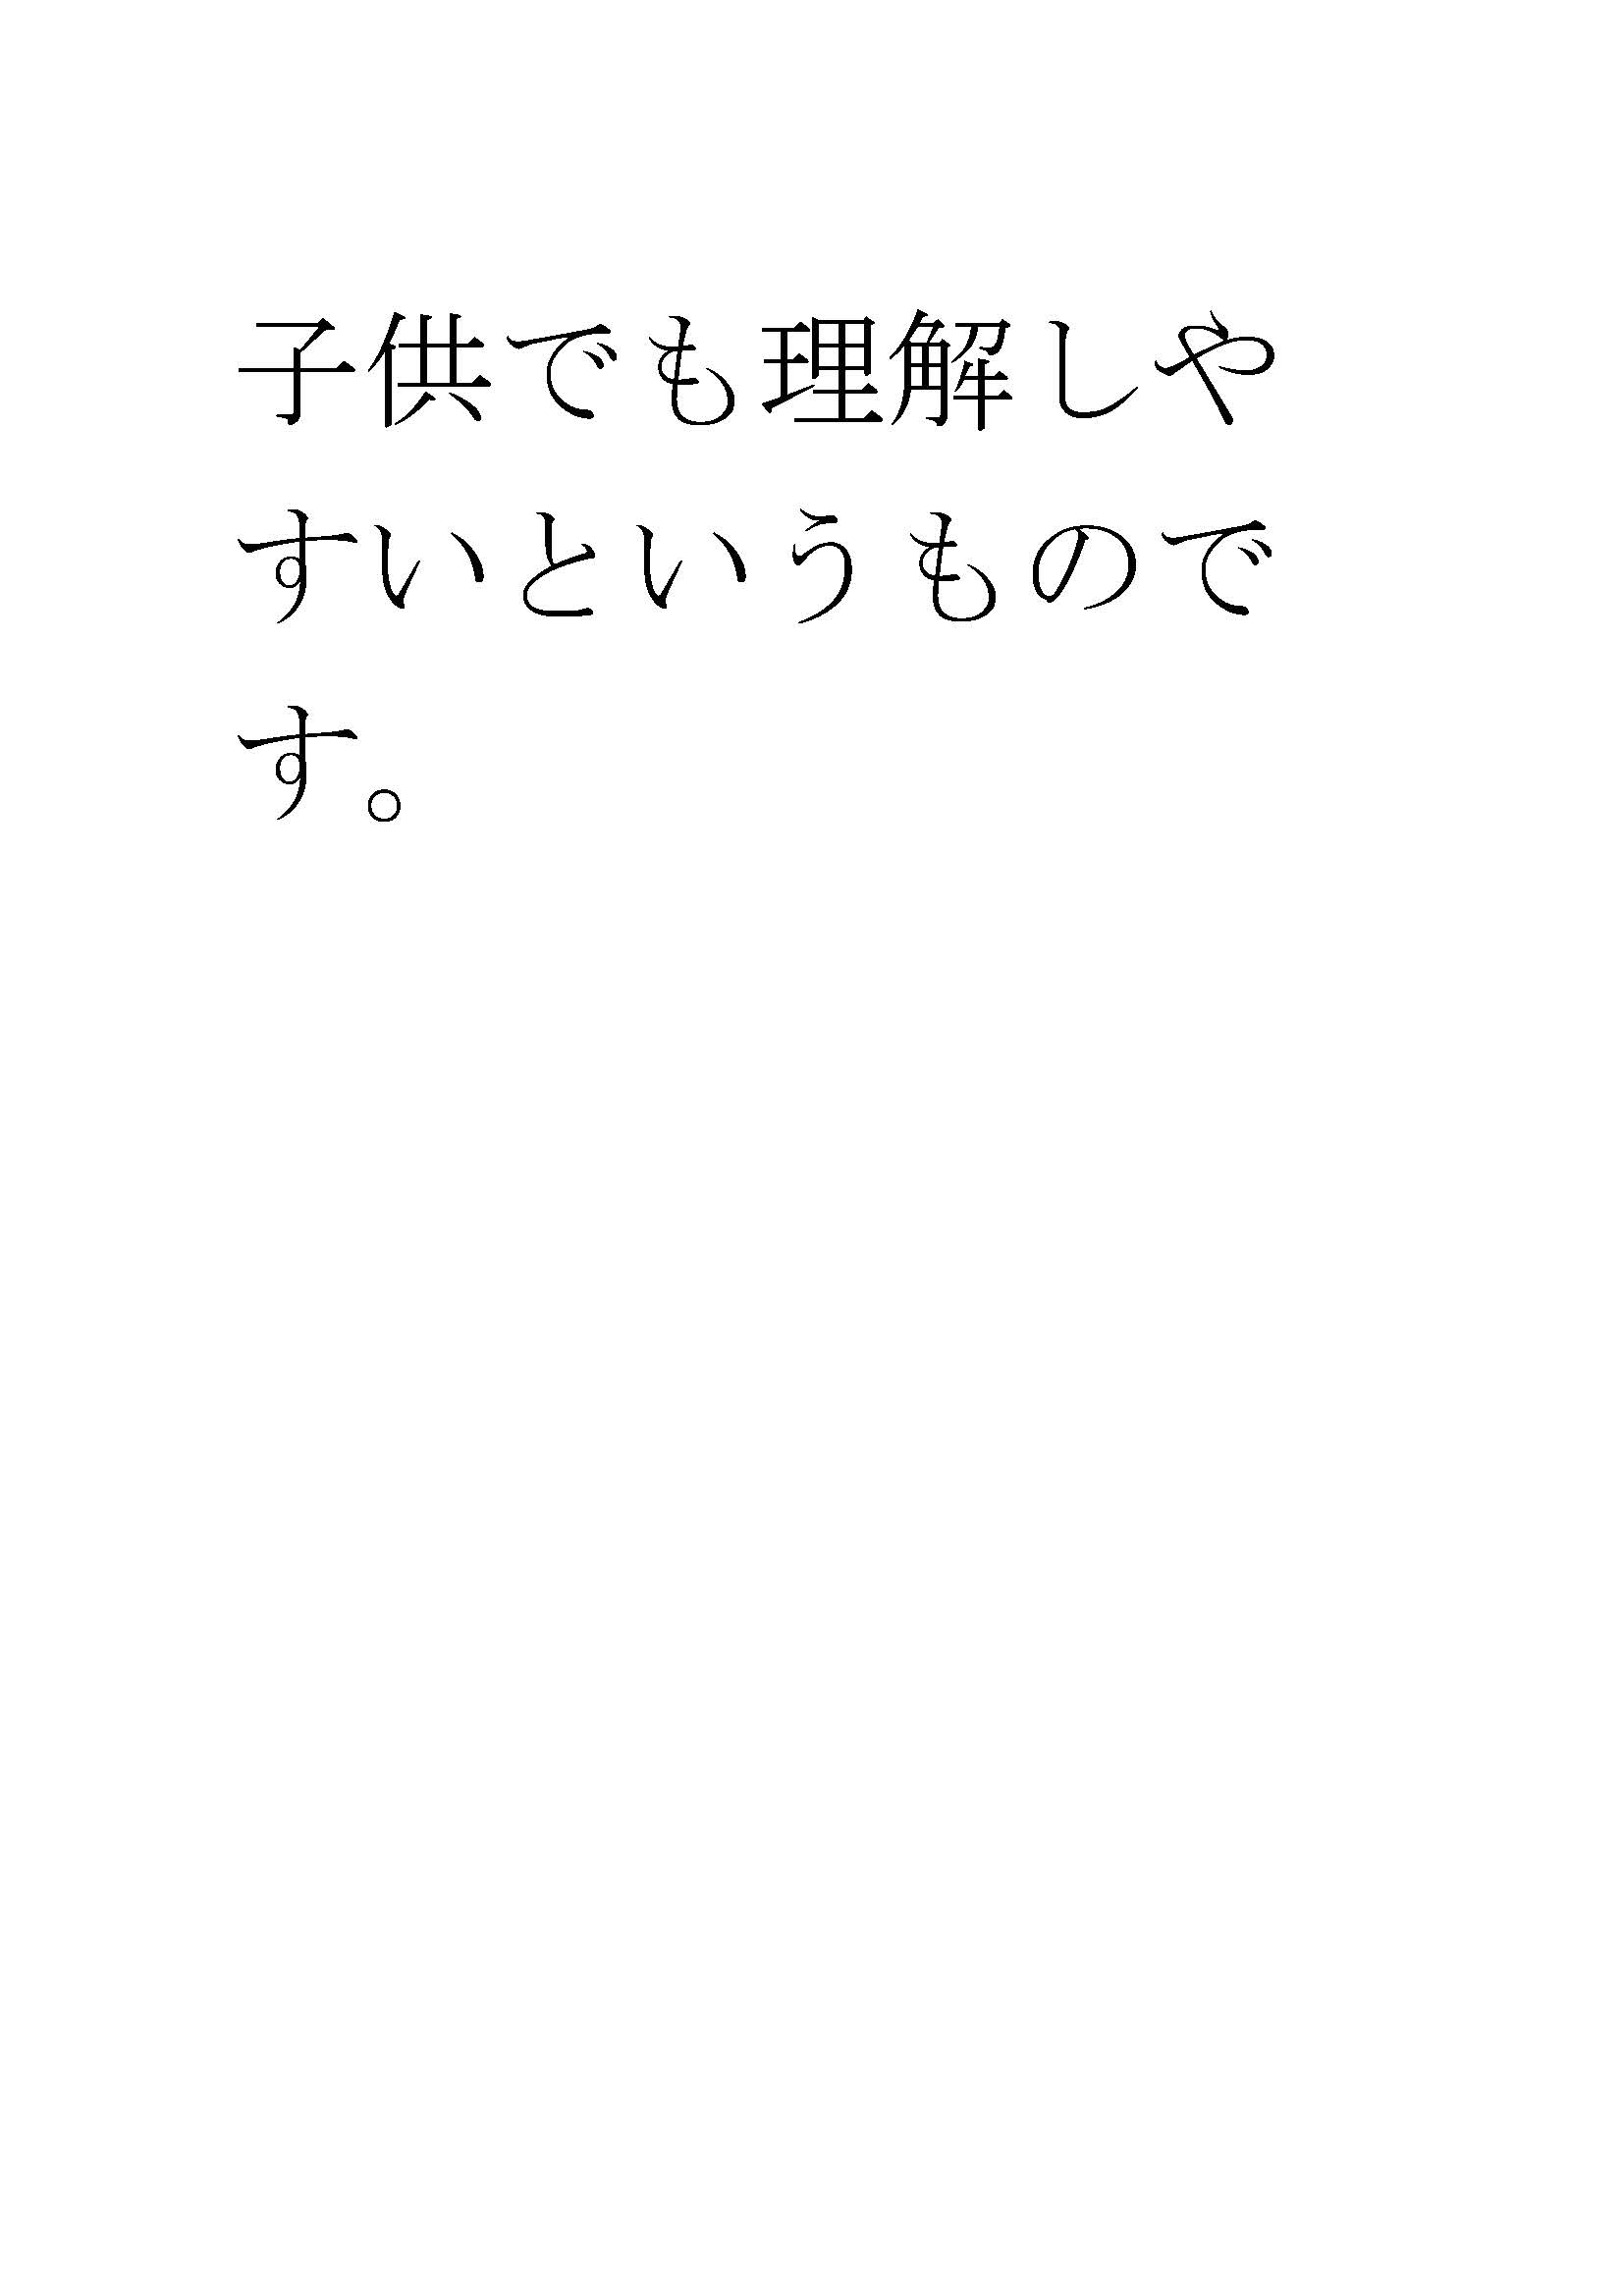 子供でも理解しや
すいというもので
す。